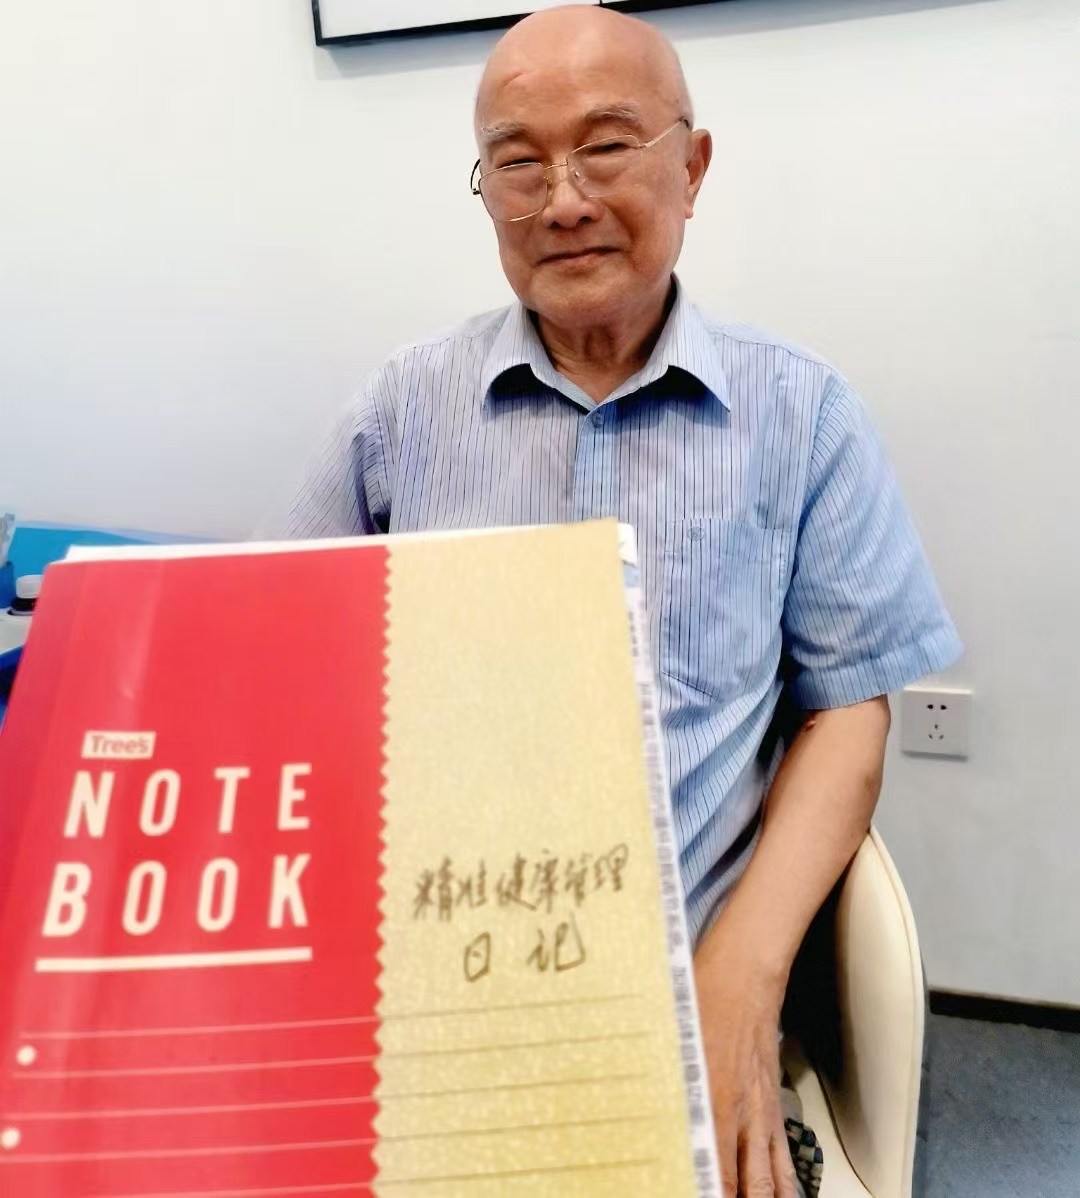 Tree's
NOTE
BOOK
精准健康管理
日记